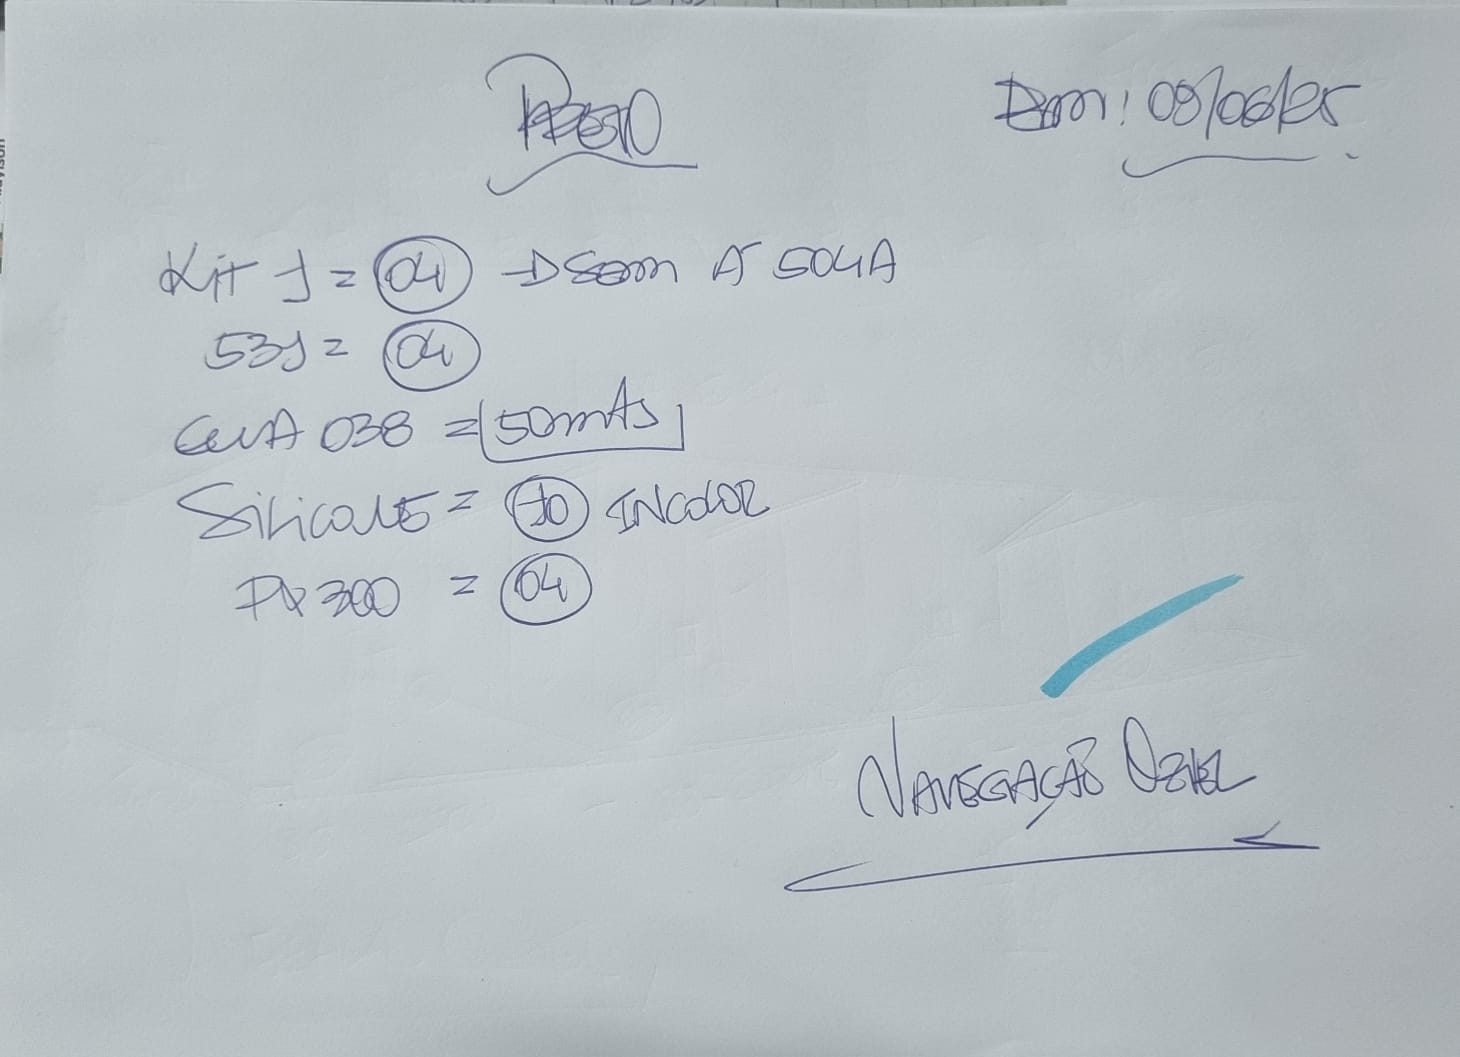 PRETO
Em: 09/06/25
Kit 1 = 04 → Sem A 504A
531 = 04
GUIA 038 = 50mts
Silicone = 10 INCOLOR
PQ 300 = 04
NAVEGAÇÃO